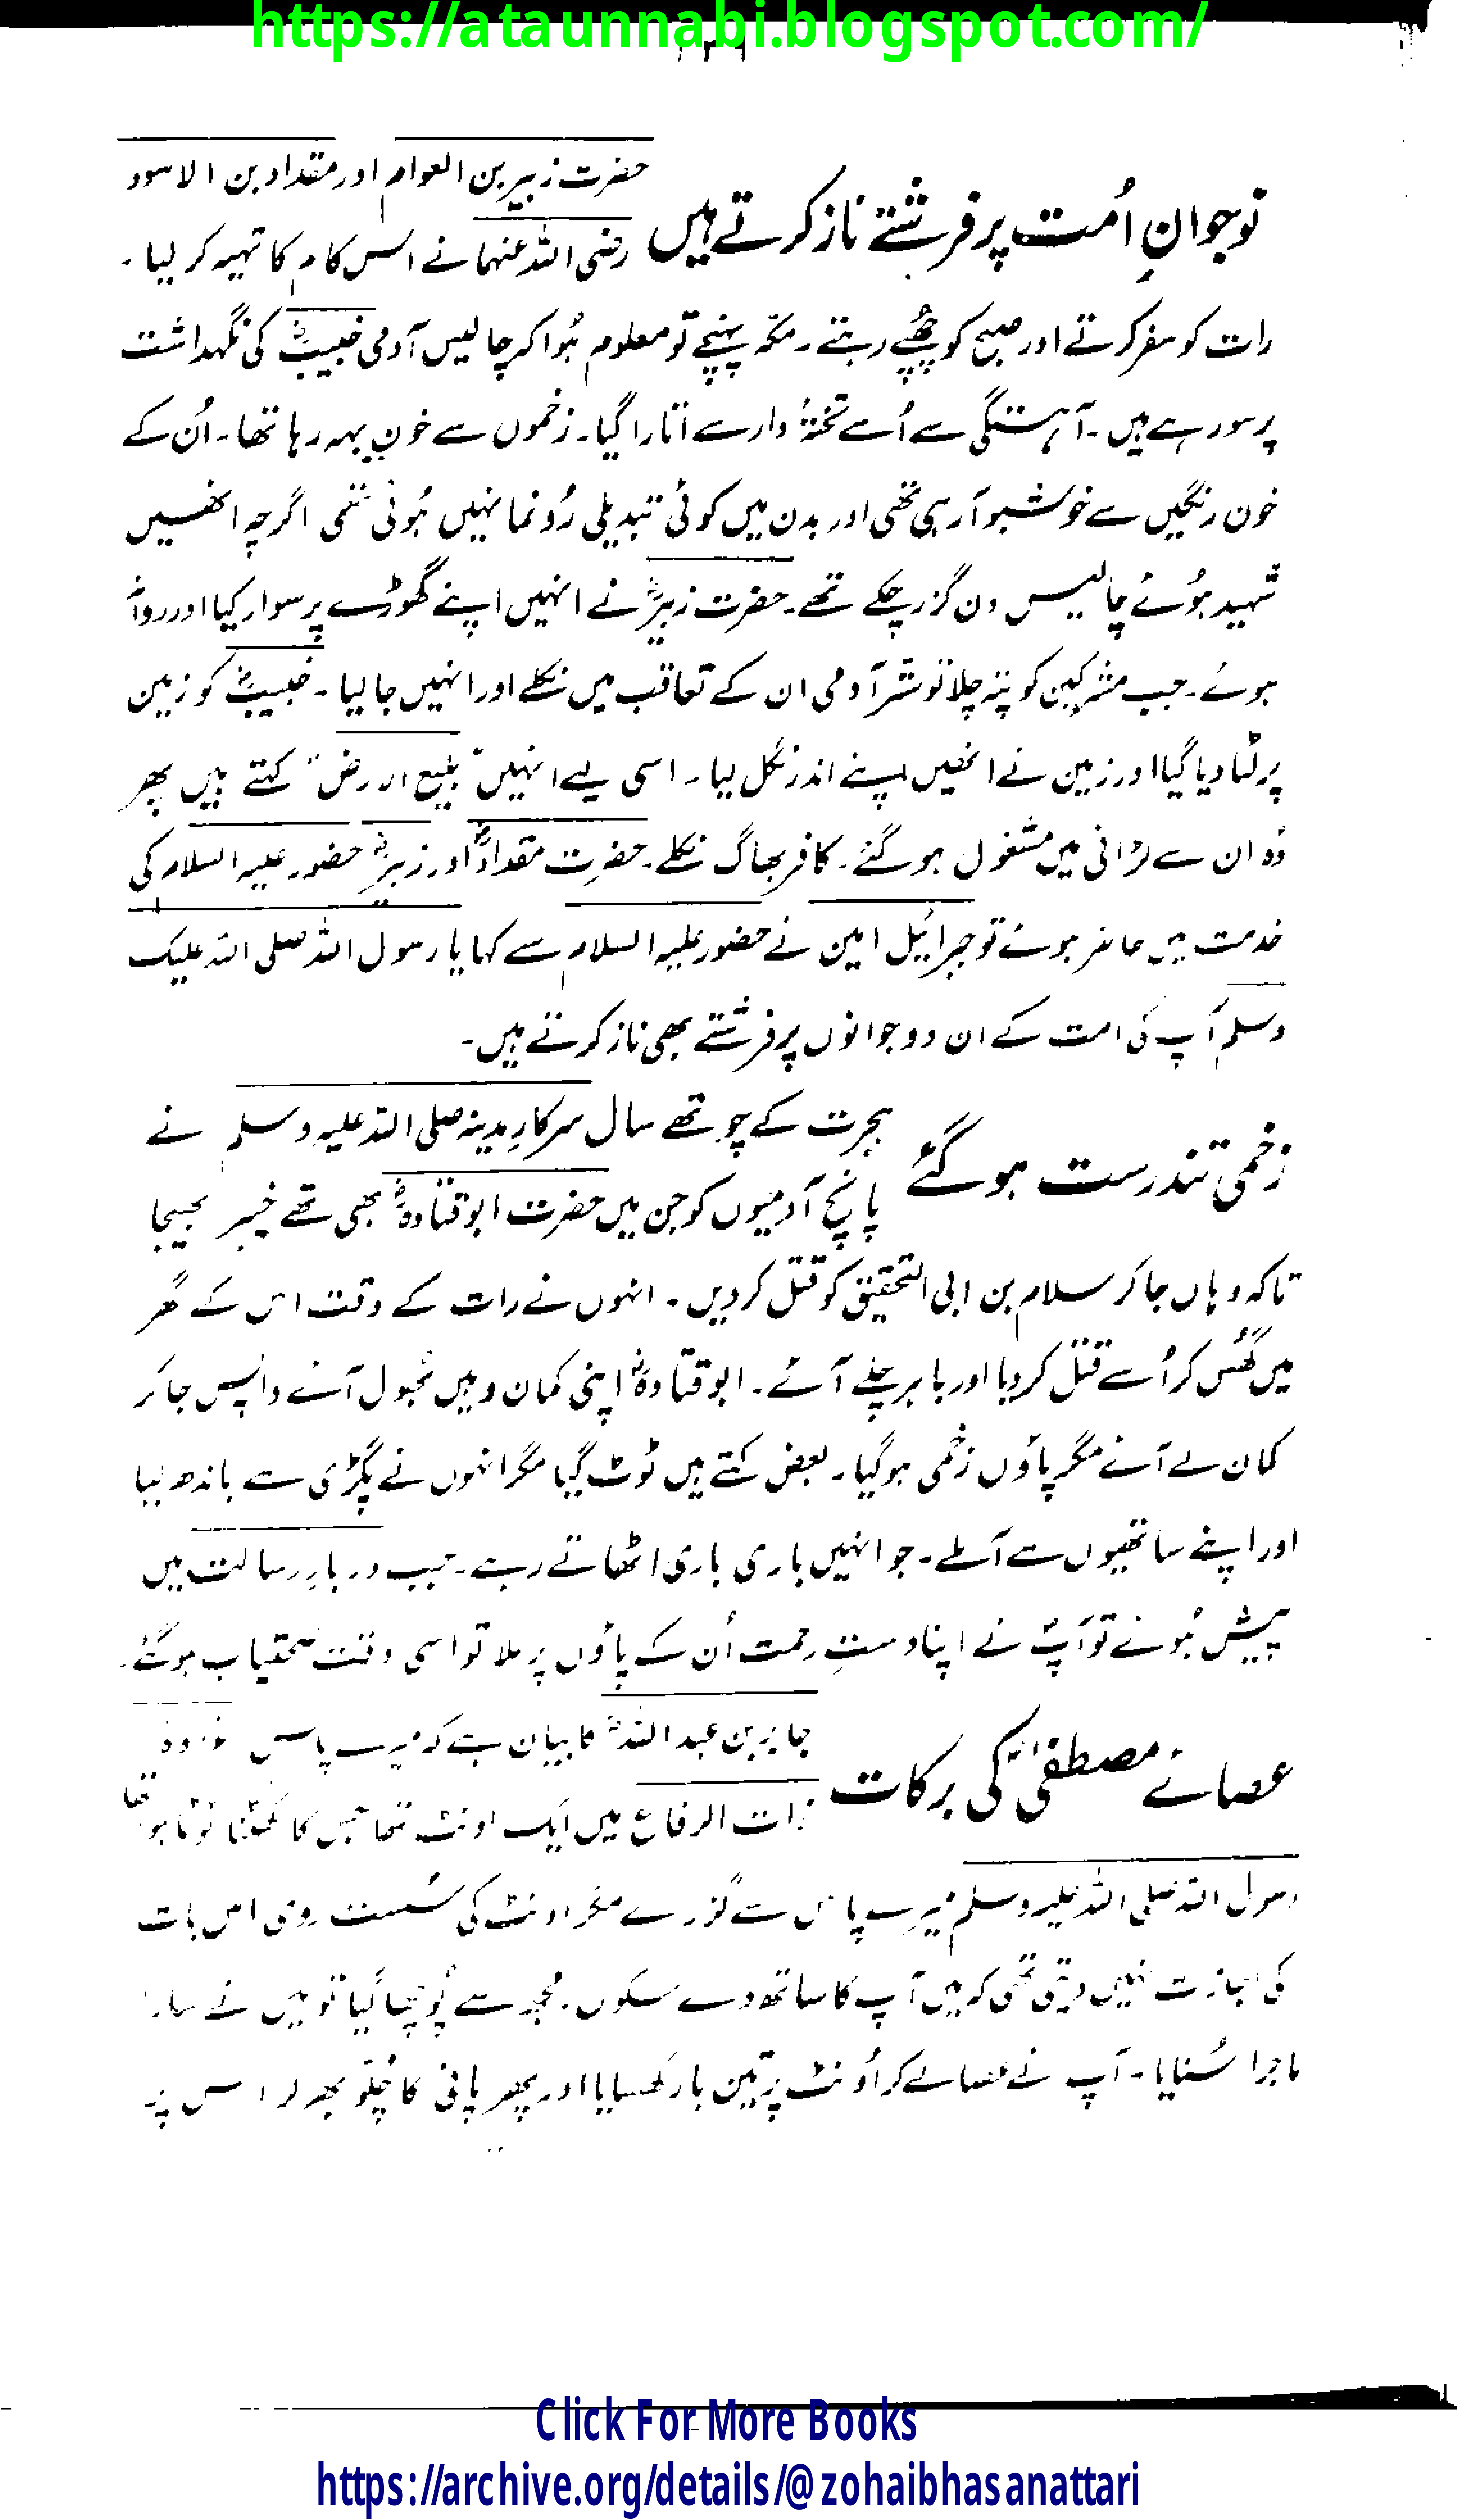 https://ataunnabi.blogspot.com/
نوجوانِ اُمت پر فرشتے ناز کرتے ہیں
حضرت زبیر بن العوام اور مقداد بن الاسود
رضی اللہ عنہما نے اس کام کا تہیہ کر لیا۔
رات کو سفر کرتے اور صبح کو چھُپے رہتے۔ مکہ پہنچے تو معلوم ہُوا کہ چالیس آدمی خبیبؓ کی نگہداشت
پر سو رہے ہیں۔ آہستگی سے اُسے تختۂ دار سے اتارا گیا۔ زخموں سے خون بہہ رہا تھا۔ اُن کے
خون رنگیں سے خوشبو آ رہی تھی اور بدن میں کوئی تبدیلی رُونما نہیں ہُوئی تھی اگرچہ انھیں
شہید ہُوئے چالیس دن گزر چکے تھے۔ حضرت زبیرؓ نے انہیں اپنے گھوڑے پر سوار کیا اور روانہ
ہوئے۔ جب مشرکین کو پتہ چلا تو ستر آدمی ان کے تعاقب میں نکلے اور انہیں جا لیا۔ خبیبؓ کو زمین
پر لٹا دیا گیا اور زمین نے انھیں اپنے اندر نگل لیا۔ اسی لیے انہیں "بلیع الارض" کہتے ہیں پھر
وُہ ان سے لڑائی میں مشغول ہو گئے۔ کافر بھاگ نکلے۔ حضرت مقدادؓ اور زبیرؓ حضور علیہ السلام کی
خدمت میں حاضر ہوئے تو جبرائیل امین نے حضور علیہ السلام سے کہا یا رسول اللہ صلی اللہ علیک
وسلم آپ کی امت کے ان دو جوانوں پر فرشتے بھی ناز کرتے ہیں۔
زخمی تندرست ہو گئے
ہجرت کے چوتھے سال سرکارِ مدینہ صلی اللہ علیہ وسلم نے
پانچ آدمیوں کو جن میں حضرت ابو قتادہؓ بھی تھے خیبر بھیجا
تاکہ وہاں جا کر سلام بن ابی التحقیق کو قتل کر دیں۔ انہوں نے رات کے وقت اس کے گھر
میں گھُس کر اُسے قتل کر دیا اور باہر چلے آئے۔ ابو قتادہؓ اپنی کمان وہیں بھُول آئے واپس جا کر
کمان لے آئے مگر پاؤں زخمی ہو گیا۔ بعض کہتے ہیں ٹوٹ گیا مگر انہوں نے پگڑی سے باندھ لیا
اور اپنے ساتھیوں سے آملے۔ جو انہیں باری باری اٹھاتے رہے۔ جب دربارِ رسالت میں
پیش ہُوئے تو آپؐ نے اپنا دستِ رحمت اُن کے پاؤں پر ملا تو اسی وقت صحتیاب ہو گئے۔
عصائے مصطفیٰؐ کی برکات
جابر بن عبداللہؓ کا بیان ہے کہ میرے پاس غزوۂ
ذات الرقاع میں ایک اونٹ تھا جس کا گھٹنا ٹوٹا ہوا تھا
رسول اللہ صلی اللہ علیہ وسلم میرے پاس سے گزرے مگر اونٹ کی سُست روی اس بات
کی اجازت نہیں دیتی تھی کہ میں آپ کا ساتھ دے سکوں۔ مجھ سے پُوچھا گیا تو میں نے سارا
ماجرا سُنایا۔ آپ نے عصا لے کر اُونٹ پر تین بار گھسایا اور پھر پانی کا چُلّو بھر کر اس پر
Click For More Books
https://archive.org/details/@zohaibhasanattari